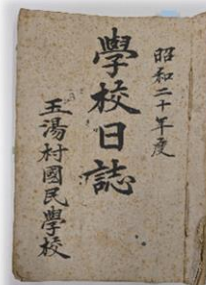 昭和二十年度
學校日誌
玉湯村國民學校